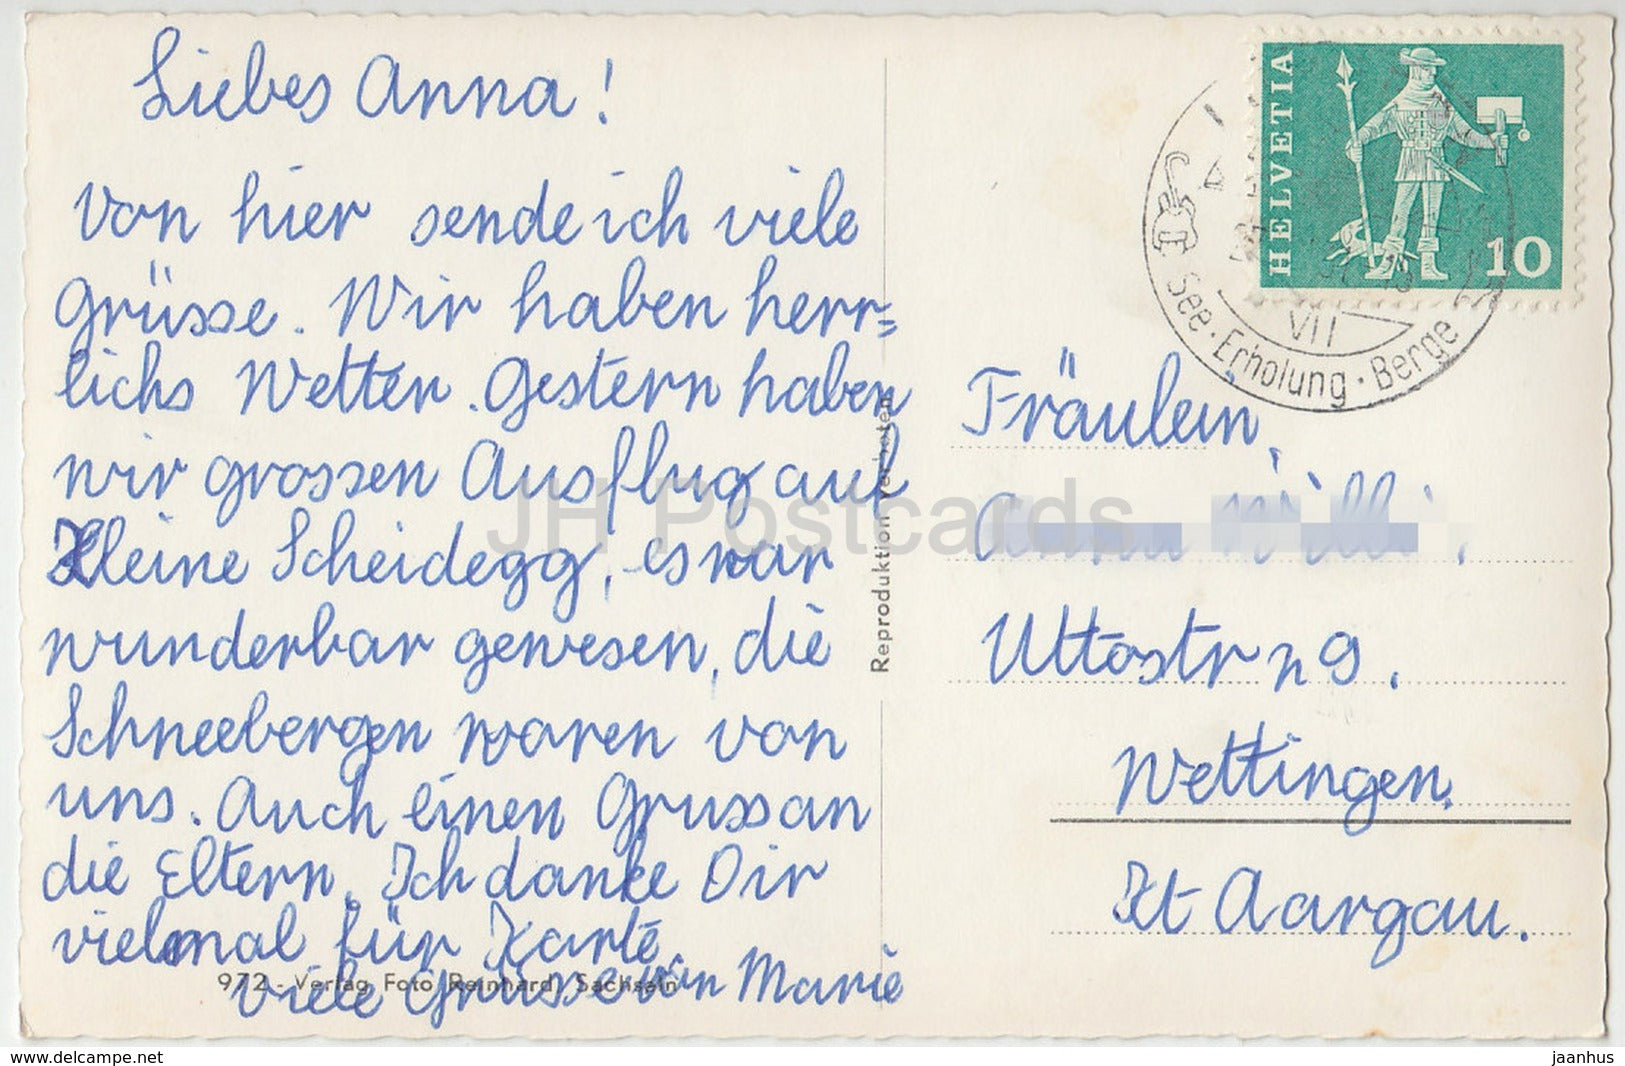 Liebes Anna!
Von hier sende ich viele
Grüsse. Wir haben herr=
lichs Wetter. Gestern haben
wir grossen Ausflug auf
Kleine Scheidegg, es war
wunderbar gewesen, die
Schneebergen waren von
uns. Auch einen Gruss an
die Eltern. Ich danke Dir
vielmal für Karte,
viele Grüsse von Marie
972 - Verlag Foto Reinhard, Sachseln
Reproduktion verboten
HELVETIA
10
VII
See · Erholung · Berge
Fräulein,
Uttostr 29.
Wettingen.
Kt Aargau.
JH Postcards
www.delcampe.net
jaanhus